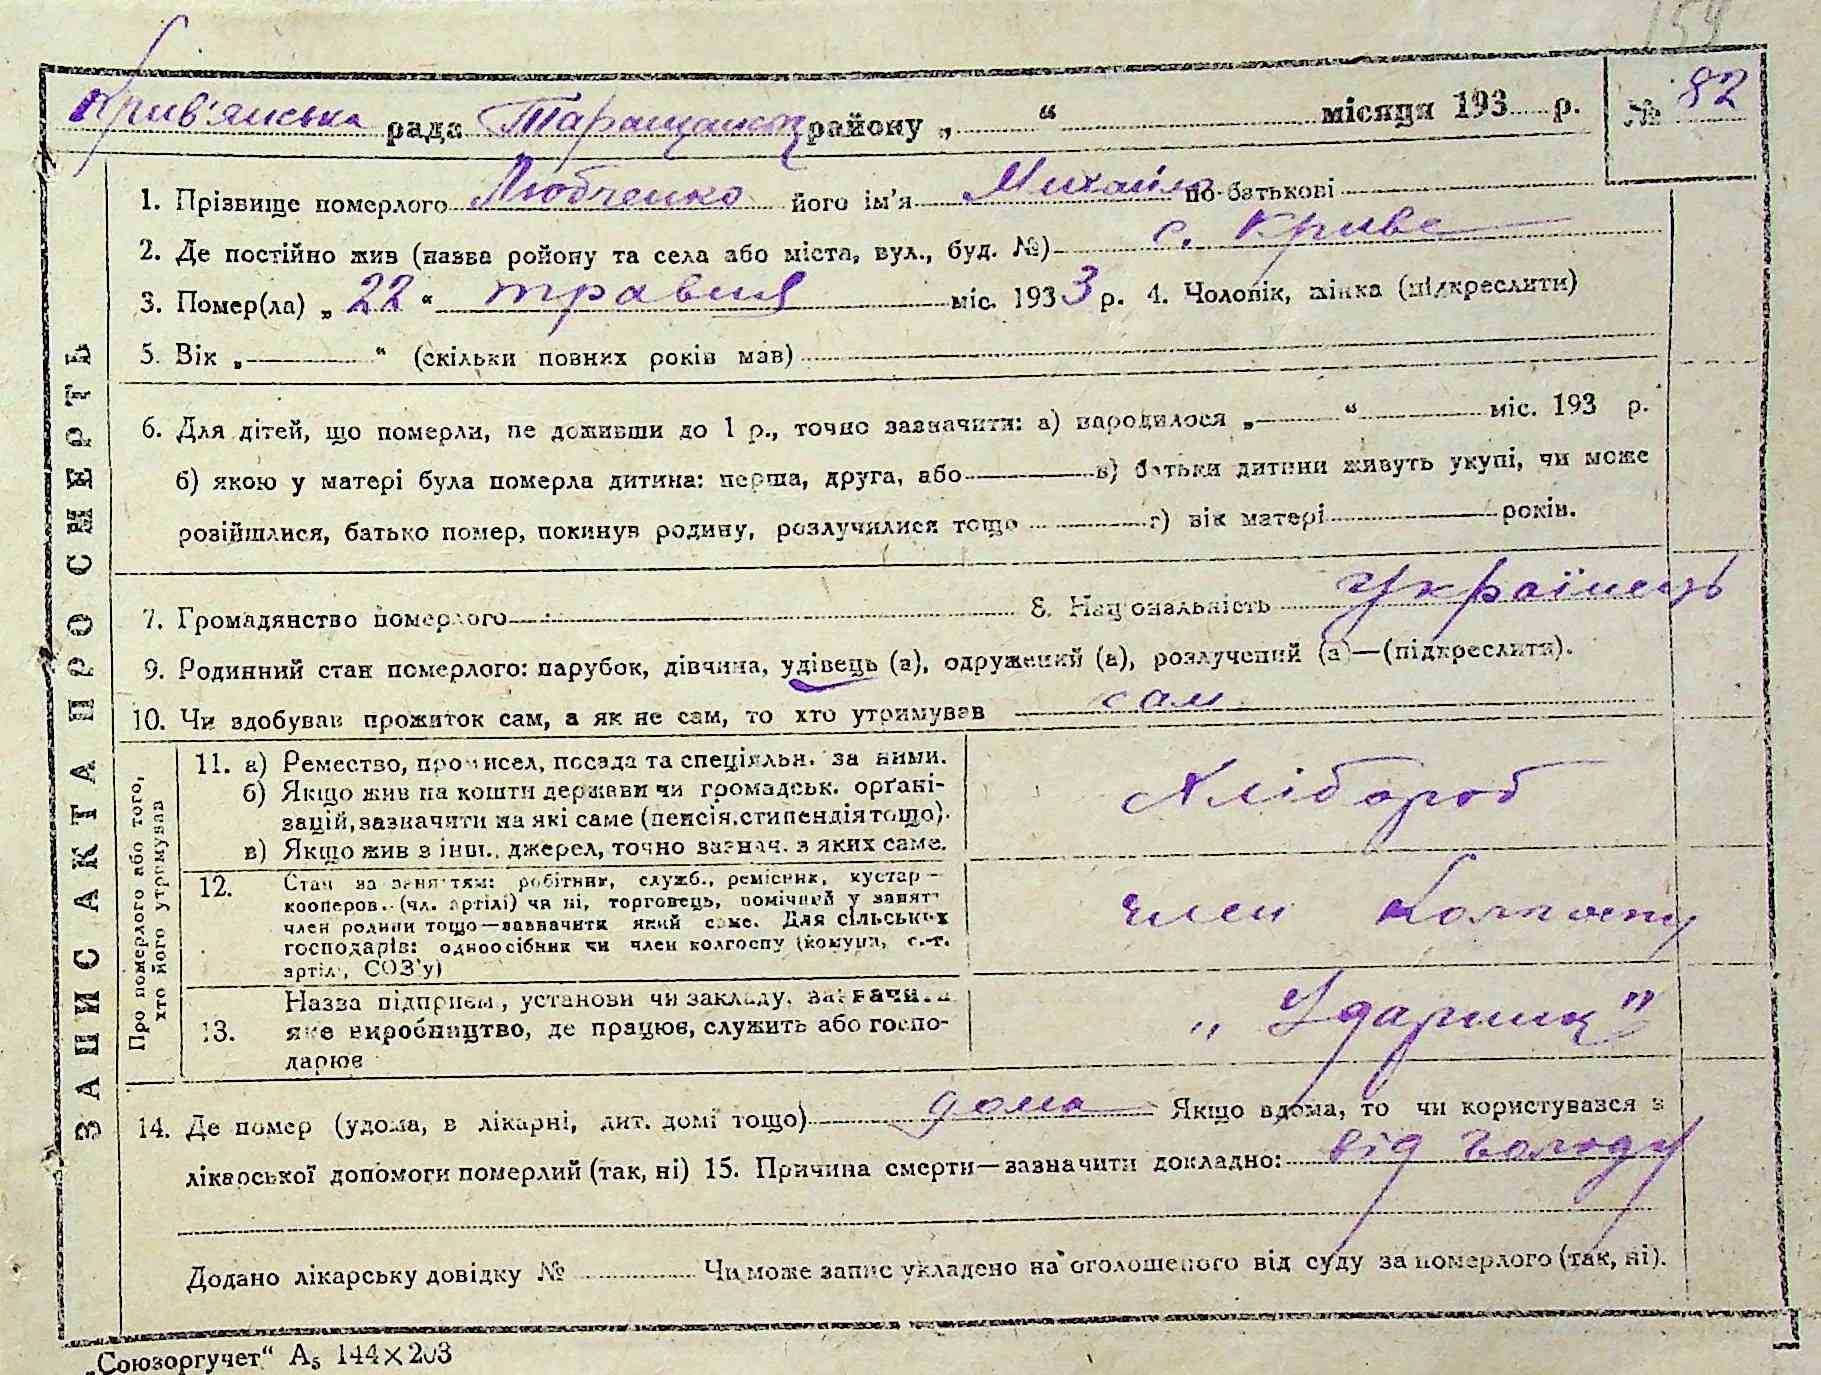 154
Крив'янська рада Таращанск району „ “ місяця 193 р. № 82
1. Прізвище померлого Любченко його ім'я Михайло по-батькові
2. Де постійно жив (назва ройону та села або міста, вул., буд. №) с. Криве
3. Помер(ла) „ 22 “ травня міс. 1933 р. 4. Чоловік, жінка (підкреслити)
5. Вік „ “ (скільки повних років мав)
6. Для дітей, що померли, не доживши до 1 р., точно зазначити: а) народилося „ “ міс. 193 р.
б) якою у матері була померла дитина: перша, друга, або в) батьки дитини живуть укупі, чи може
розійшлися, батько помер, покинув родину, розлучилися тощо г) вік матері років.
7. Громадянство померлого 8. Національність Українець
9. Родинний стан померлого: парубок, дівчина, удівець (а), одружений (а), розлучений (а)—(підкреслити).
10. Чи здобував прожиток сам, а як не сам, то хто утримував сам
ЗАПИС АКТА ПРО СМЕРТЬ
Про померлого або того,
хто його утримував
11. а) Ремество, промисел, посада та спеціяльн. за ними.
б) Якщо жив на кошти держави чи громадськ. орґані-
зацій, зазначити на які саме (пенсія, стипендія тощо).
в) Якщо жив з інш. джерел, точно зазнач. з яких саме.
Хлібороб
12. Стан за заняттям: робітник, служб., ремісник, кустар—
кооперов. (чл. артілі) чи ні, торговець, помічний у занят.
член родини тощо—зазначити який саме. Для сільських
господарів: одноосібник чи член колгоспу (комуни, с.-г.
артілі, СОЗ'у)
член колгоспу
13. Назва підприєм., установи чи закладу, зазначити
яке виробництво, де працює, служить або госпо-
дарює
„ Ударник”
14. Де помер (удома, в лікарні, дит. домі тощо) дома Якщо вдома, то чи користувався з
лікарської допомоги померлий (так, ні) 15. Причина смерти—зазначити докладно: від голоду
Додано лікарську довідку № Чи може запис укладено на оголошеного від суду за померлого (так, ні).
„Союзоргучет“ А₅ 144×203